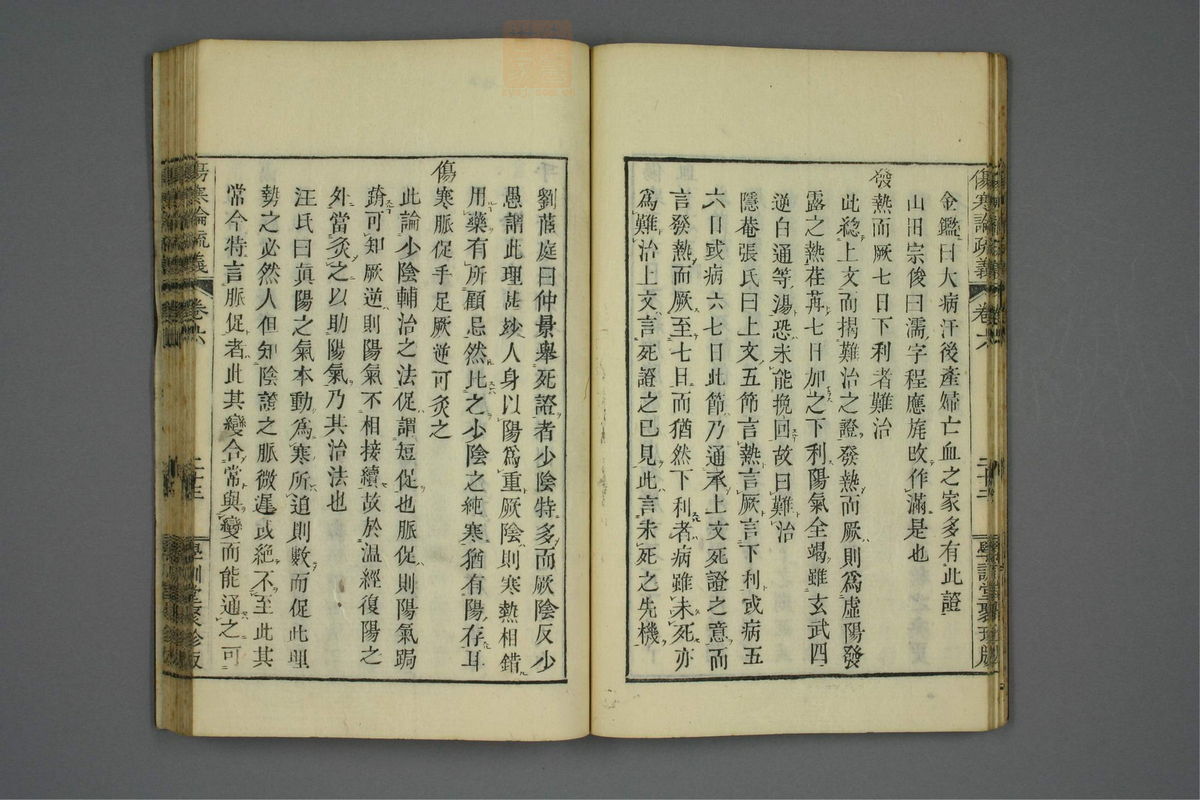 傷寒論疏義 卷六 二十三 學訓堂聚珍版
金鑑曰大病汗後產婦亡血之家多有此證
山田宗俊曰濡字程應旄改作滿是也
發熱而厥七日下利者難治
此稔上文而揭難治之證發熱而厥則爲虛陽發
露之熱荏苒七日加之下利陽氣全竭雖玄武四
逆白通等湯恐未能挽回故曰難治
隱菴張氏曰上文五節言熱言厥言下利或病五
六日或病六七日此節乃通承上文死證之意而
言發熱而厥至七日而猶然下利者病雖未死亦
爲難治上文言死證之已見此言未死之先機
劉茝庭曰仲景舉死證者少陰特多而厥陰反少
愚謂此理甚妙人身以陽爲重厥陰則寒熱相錯
用藥有所顧忌然比之少陰之純寒猶有陽存耳
傷寒脈促手足厥逆可灸之
此論少陰輔治之法促謂短促也脈促則陽氣跼
蹐可知厥逆則陽氣不相接續故於溫經復陽之
外當灸之以助陽氣乃其治法也
汪氏曰眞陽之氣本動爲寒所迫則數而促此理
勢之必然人但知陰證之脈微遲或絕不至此其
常今特言脈促者此其變合常與變而能通之可
傷寒論疏義 卷六 二十三 學訓堂聚珍版